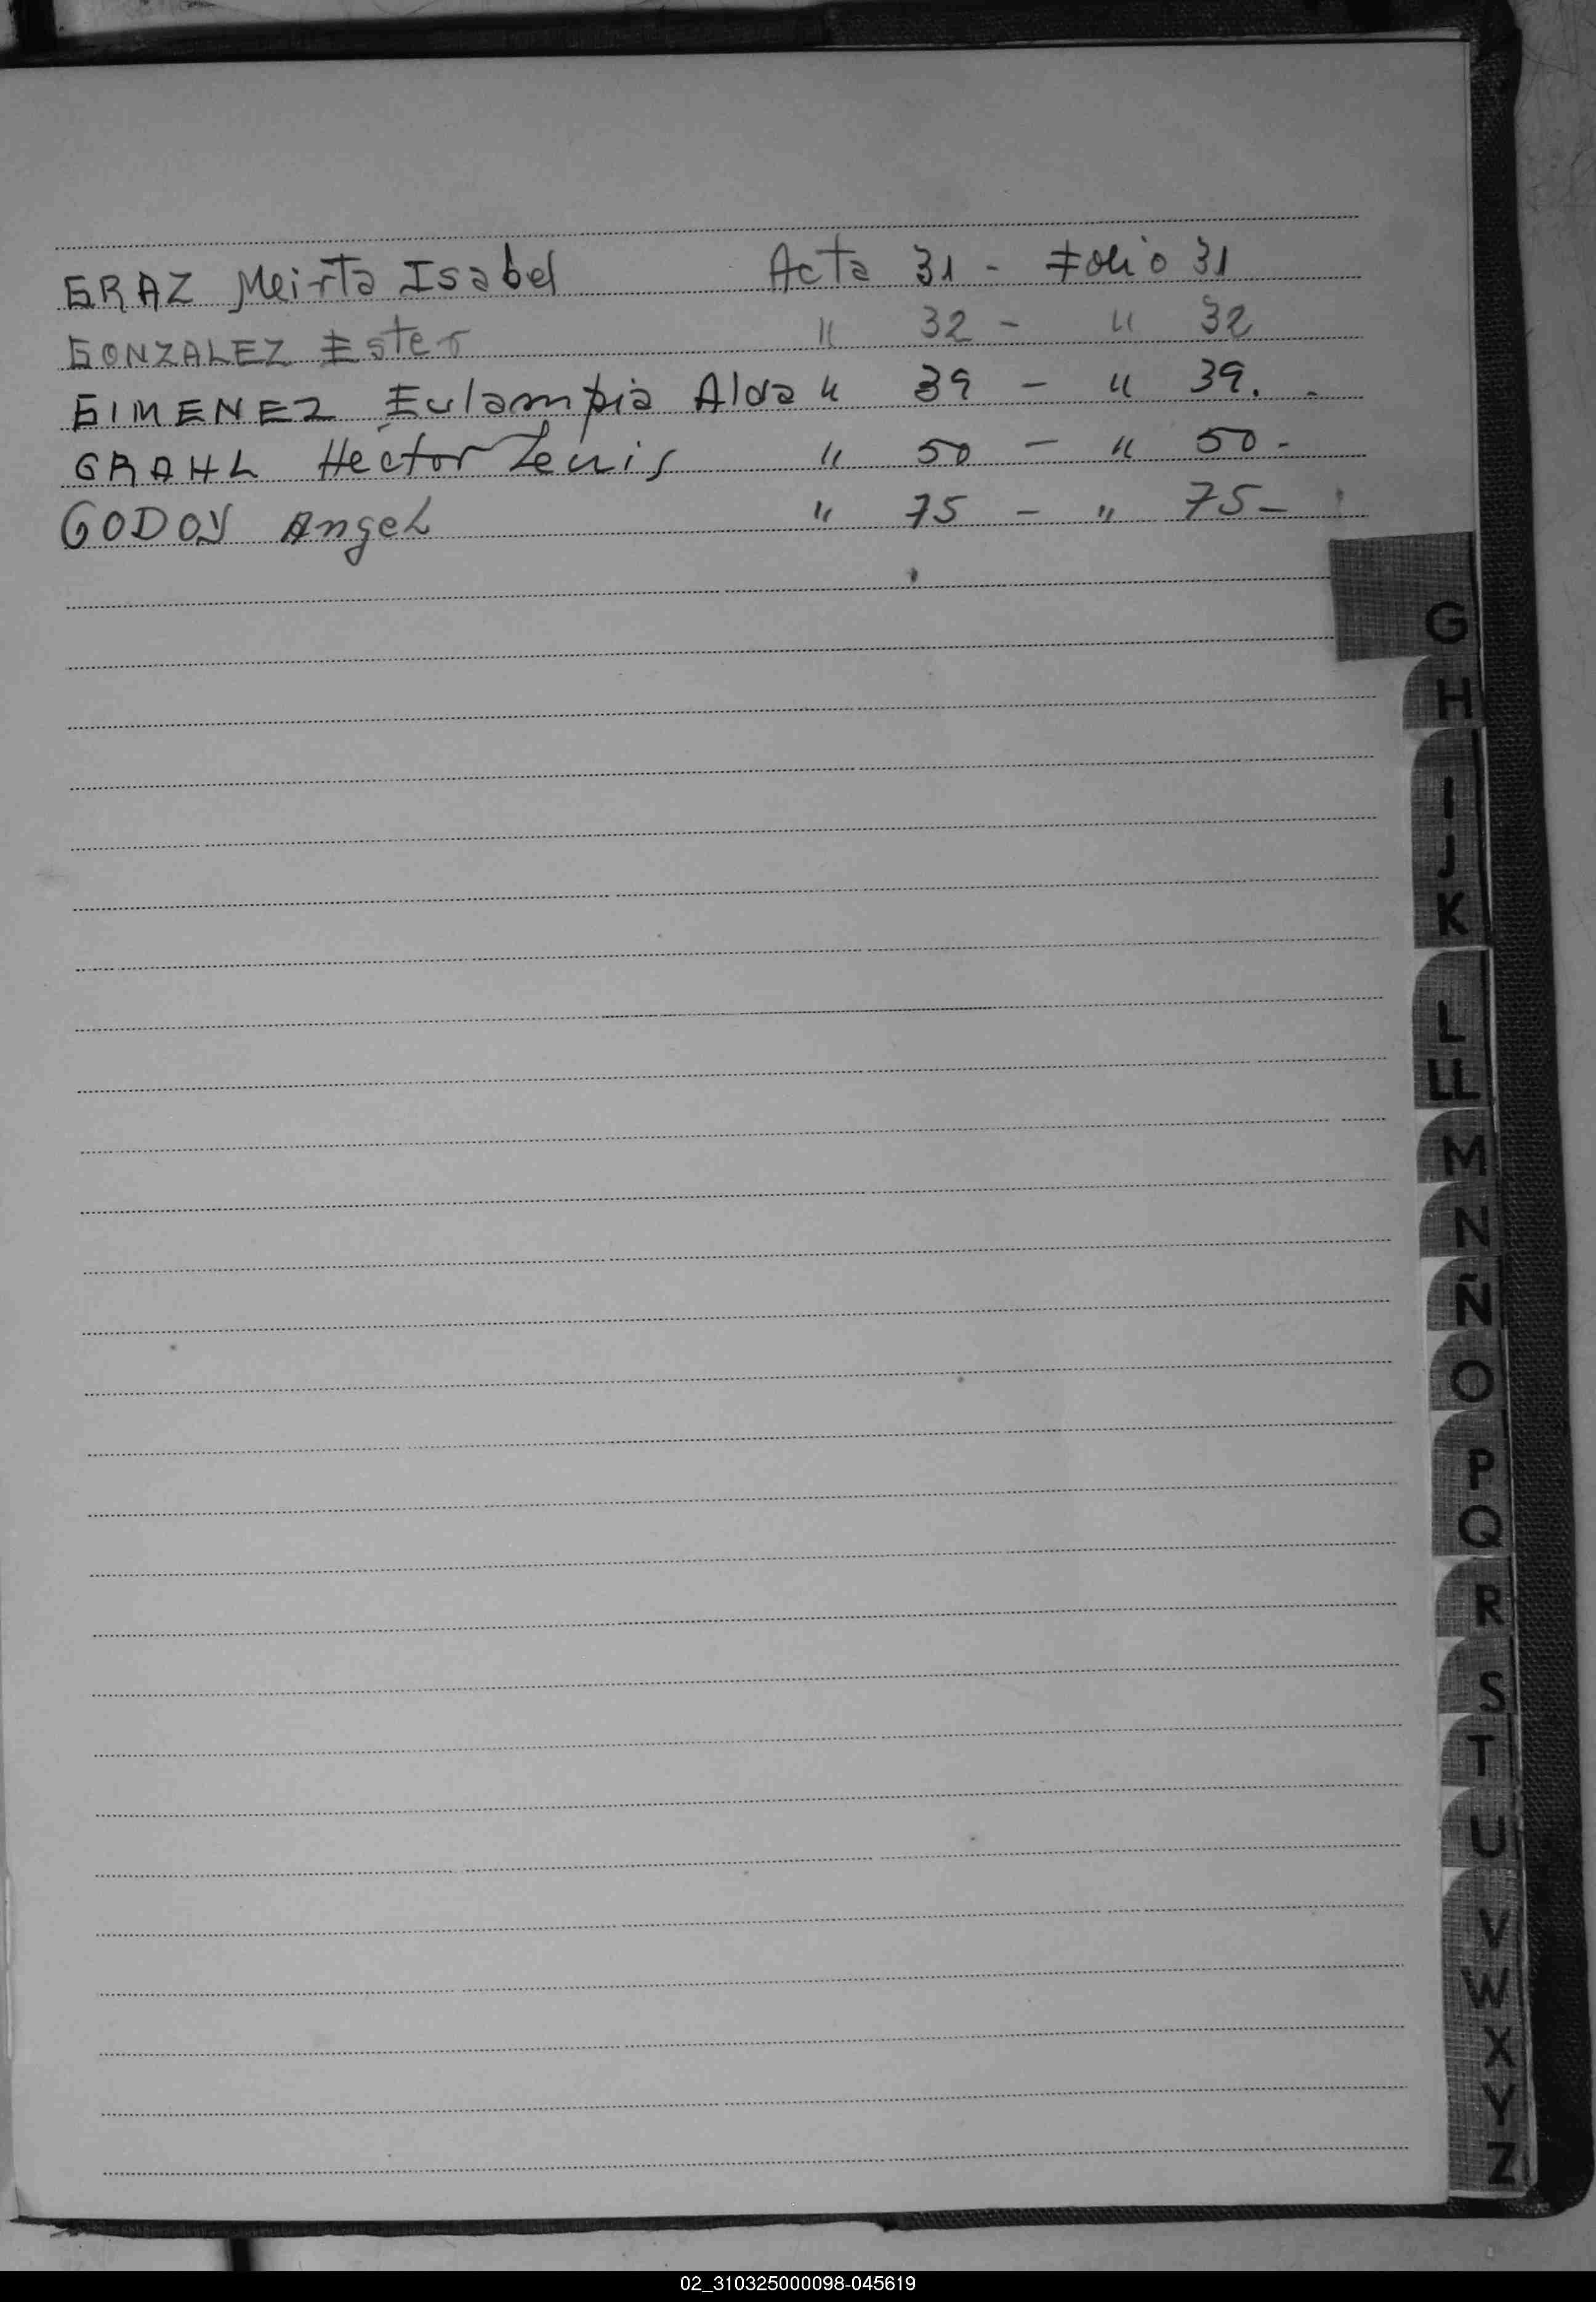 GRAZ Meirta Isabel Acta 31 - Folio 31
GONZALEZ Ester " 32 - " 32
GIMENEZ Eulampia Alda " 39 - " 39.
GRAHL Héctor Zenis " 50 - " 50-
GODOY Angel " 75 - " 75-
G
H
I
J
K
L
LL
M
N
Ñ
O
P
Q
R
S
T
U
V
W
X
Y
Z
02_310325000098-045619